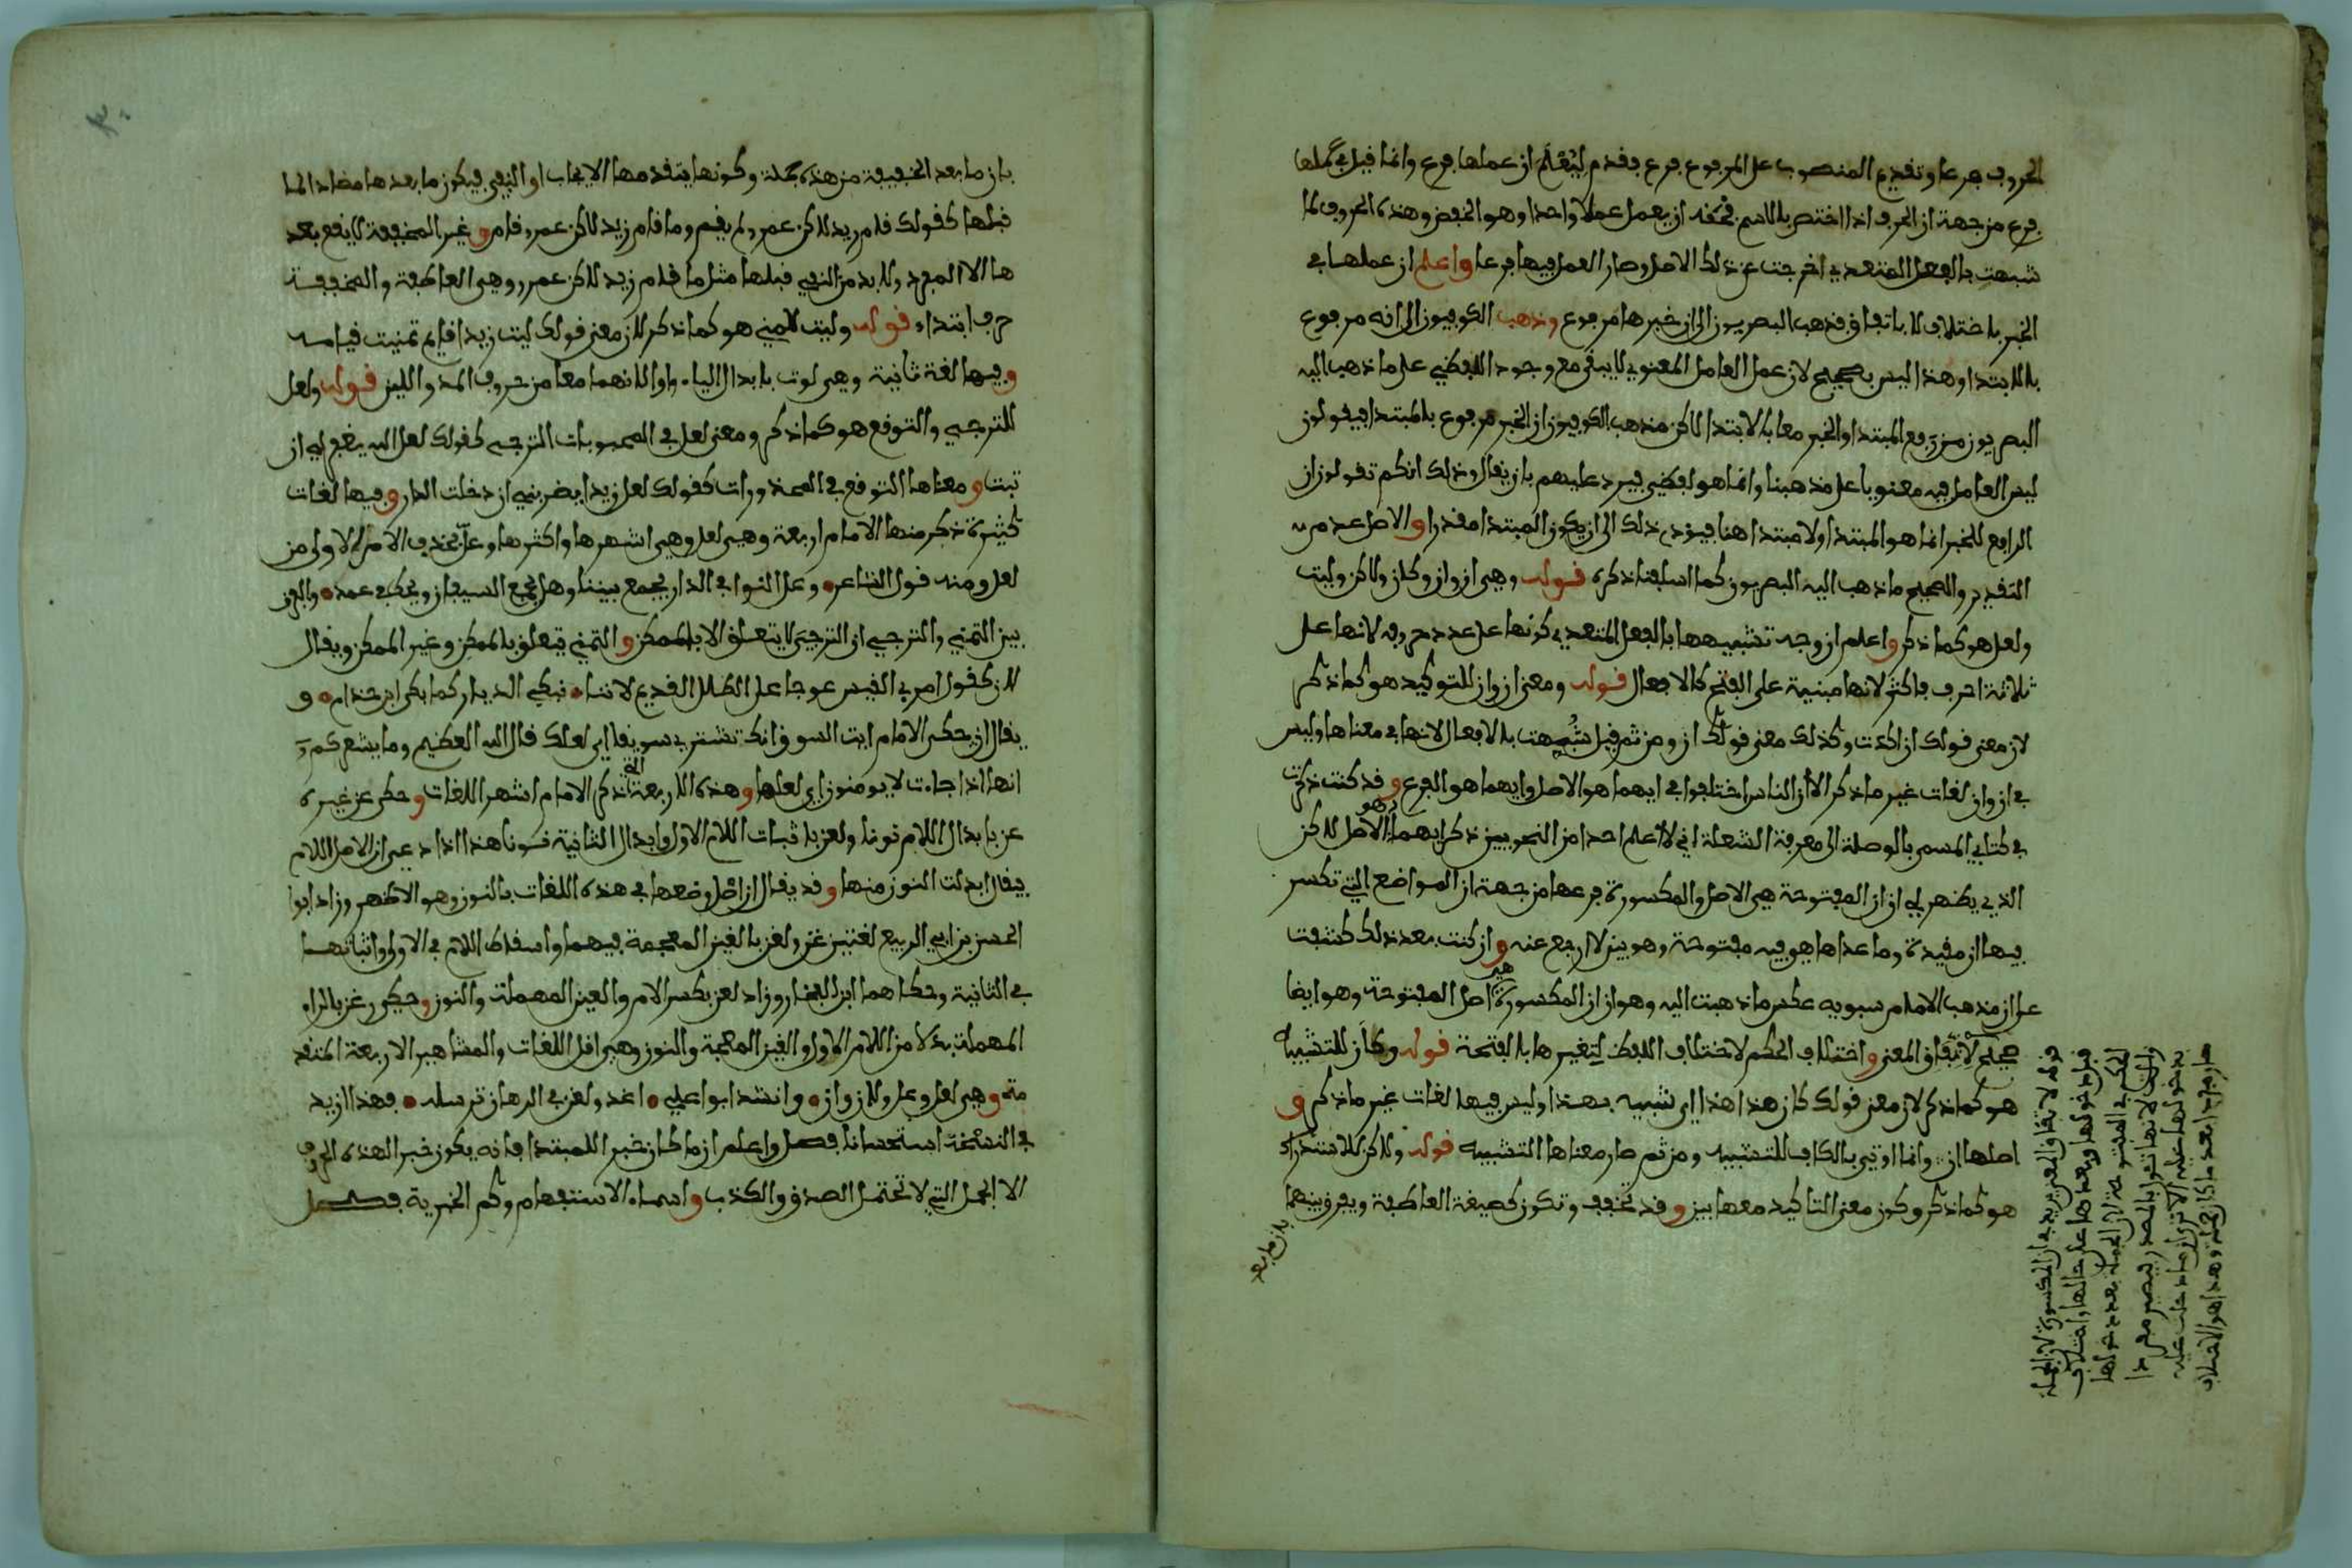 الحروف فرعا وتقديم المنصوب على المرفوع فرع فقدم ليُعْلَمَ ان عملها فرع وانما قيل في عملها
فرع من جهة ان الحرف اذا اختص بالاسم فحقه ان يعمل عملا واحدا وهو الخفض وهذه الحروف لما
شبهت بالفعل المتعدي اخرجت عن ذلك الاصل وصار العمل فيها فرعا واعلم ان عملها في
الخبر باختلاف لا باتفاق فذهب البصريون الى ان خبرها مرفوع وذهب الكوفيون الى انه مرفوع
بالابتدا وهذا ليس بصحيح لان عمل العامل المعنوي لا يبقى مع وجود اللفظي على ما ذهب اليه
البصريون من رفع المبتدا والخبر معا بالابتدا لاكن مذهب الكوفيون ان الخبر مرفوع بالمبتدا فيقولون
ليس العامل فيه معنويا على مذهبنا وانما هو لفظي فيرد عليهم بان يقال وذلك انكم تقولون ان
الرافع للخبر انما هو المبتدا ولا مبتدا هنا فيؤدي ذلك الى ان يكون المبتدا مقدرا والاصل عدم
التقدير والصحيح ما ذهب اليه البصريون كما اسلفنا ذكره قوله وهي ان وان وكان ولاكن وليت
ولعل هو كما ذكر واعلم ان وجه تشبيهها بالفعل المتعدي كونها على عدد حروفه لانها على
ثلاثة احرف فاكثر لانها مبنية على الفتح كالافعال قوله ومعنى ان وان للتوكيد هو كما ذكر
لان معنى قولك ان اكدت وكذلك معنى قولك ان ومن ثم قيل شُبِّهت بالافعال لانها في معناها وليس
في ان وان لغات غير ما ذكر الا ان الناس اختلفوا في ايهما هو الاصل وايهما هو الفرع وقد كنت ذكرت
في كتابي المسمى بالوصلة الى معرفة الشعلة اني لا اعلم احدا من النحويين ذكر ايهما هو الاصل لاكن
الذي يظهر لي ان ان المفتوحة هي الاصل والمكسورة فرعها من جهة ان المواضع التي تكسر
فيها ان مفيدة وما عداها هي فيه مفتوحة وهو بين لا ارجع عنه وان كنت بعد ذلك كشفت
على ان مذهب الامام سبويه عكس ما ذهبت اليه وهو ان ان المكسورة هي اصل المفتوحة وهو ايضا
صحيح لاتفاق المعنى واختلاف الحكم لاختلاف اللفظ لتغيرها بالفتحة قوله وكأن للتشبيه
هو كما ذكر لان معنى قولك كان هذا هذا اي شبيه بهذا وليس فيها لغات غير ما ذكر و
اصلها ان وانما اوتي بالكاف للتشبيه ومن ثم صار معناها التشبيه قوله ولاكن للاستدراك
هو كما ذكر وكون معنى التاكيد معها بين وقد تخفف وتكون كصيغة العاطفة ويفرق بينهما
بان ما بعد
قوله لاتفاق المعنى يريد ان المكسورة لان الجملة
قبل دخولها وبعدها على حالها واختلاف
الحكم في المفتوحة لان الجملة بعد دخولها
ليست لانها تئول بالمصدر فيصير مفردا
بدخولها عليه الا ترى ان ما دخلت عليه
صار مفردا بعد ما كان جملة وهذا هو الاختلاف
٣٠
بان ما بعد الخفيفة من هذه جملة وكونها يتقدمها الايجاب او النفي فيكون ما بعدها مضادا لما
قبلها كقولك قام زيد لاكن عمر ولم يقم وما قام زيد لاكن عمرو قام وغير المخففة لا يقع بعد
ها الا المفرد ولا بد من النفي قبلها مثل ما قام زيد لاكن عمرو وهي العاطفة والمخففة
حرف ابتداء قوله وليت للتمني هو كما ذكر لان معنى قولك ليت زيدا قايم تمنيت قيامه
وفيها لغة ثانية وهي لوت بابدال الياء واوا لانهما معا من حروف المد واللين قوله ولعل
للترجي والتوقع هو كما ذكر ومعنى لعل في المحبوبات الترجي كقولك لعل الله يغفر لي ان
تبت ومعناها التوقع في المحذورات كقولك لعل زيدا يضربني ان دخلت الدار وفيها لغات
كثيرة ذكر منها الامام اربعة وهي لعل وهي اشهرها واكثرها وعل بحذف الام الاولى من
لعل ومنه قول الشاعر وعل النوا في الدار يجمع بيننا وهل يجمع السيفان ويحك في غمد والفرق
بين التمني والترجي ان الترجي لا يتعلق الا بالممكن والتمني يتعلق بالممكن وغير الممكن ويقال
لان كقول امرئ القيس عوجا على الطلل القديم لاننا نبكي الديار كما بكى ابن خذام و
يقال ان حكى الامام ايت السوق انك تشتري سويقا اي لعلك قال الله العظيم وما يشعركم
انها اذا جاءت لا يومنون اي لعلها وهذه الاربعة التي ذكر الامام اشهر اللغات وحكى عن غيره
عن بابدال اللام نونا ولعن باثبات اللام الاولى وابدال الثانية نونا هذا اذا دعي ان الاصل اللام
فيقال ابدلت النون منها وقد يقال ان اصل وضعها في هذه اللغات بالنون وهو الاظهر وزاد ابوا
الحسن بن ابي الربيع لغتين غن ولغن بالغين المعجمة فيهما واسقاط اللام في الاولى واثباتها
في الثانية وحكاهما ابن الفخار وزاد لعن بكسر الام والعين المهملة والنون وحكى رغن بالراء
المهملة بدلا من اللام الاولى والغين المعجمة والنون وهي اقل اللغات والمشاهير الاربعة المتقد
مة وهي لعل وعل ولان وان وانشد ابوا علي اغد ولغن في الرهان نرسله فهذا ازيد
في النسخة استحسانا فصل واعلم ان ما كان خبرا للمبتدا فانه يكون خبرا لهذه الحروف
الا الجمل التي لا تحتمل الصدق والكذب واسماء الاستفهام وكم الخبرية فصل